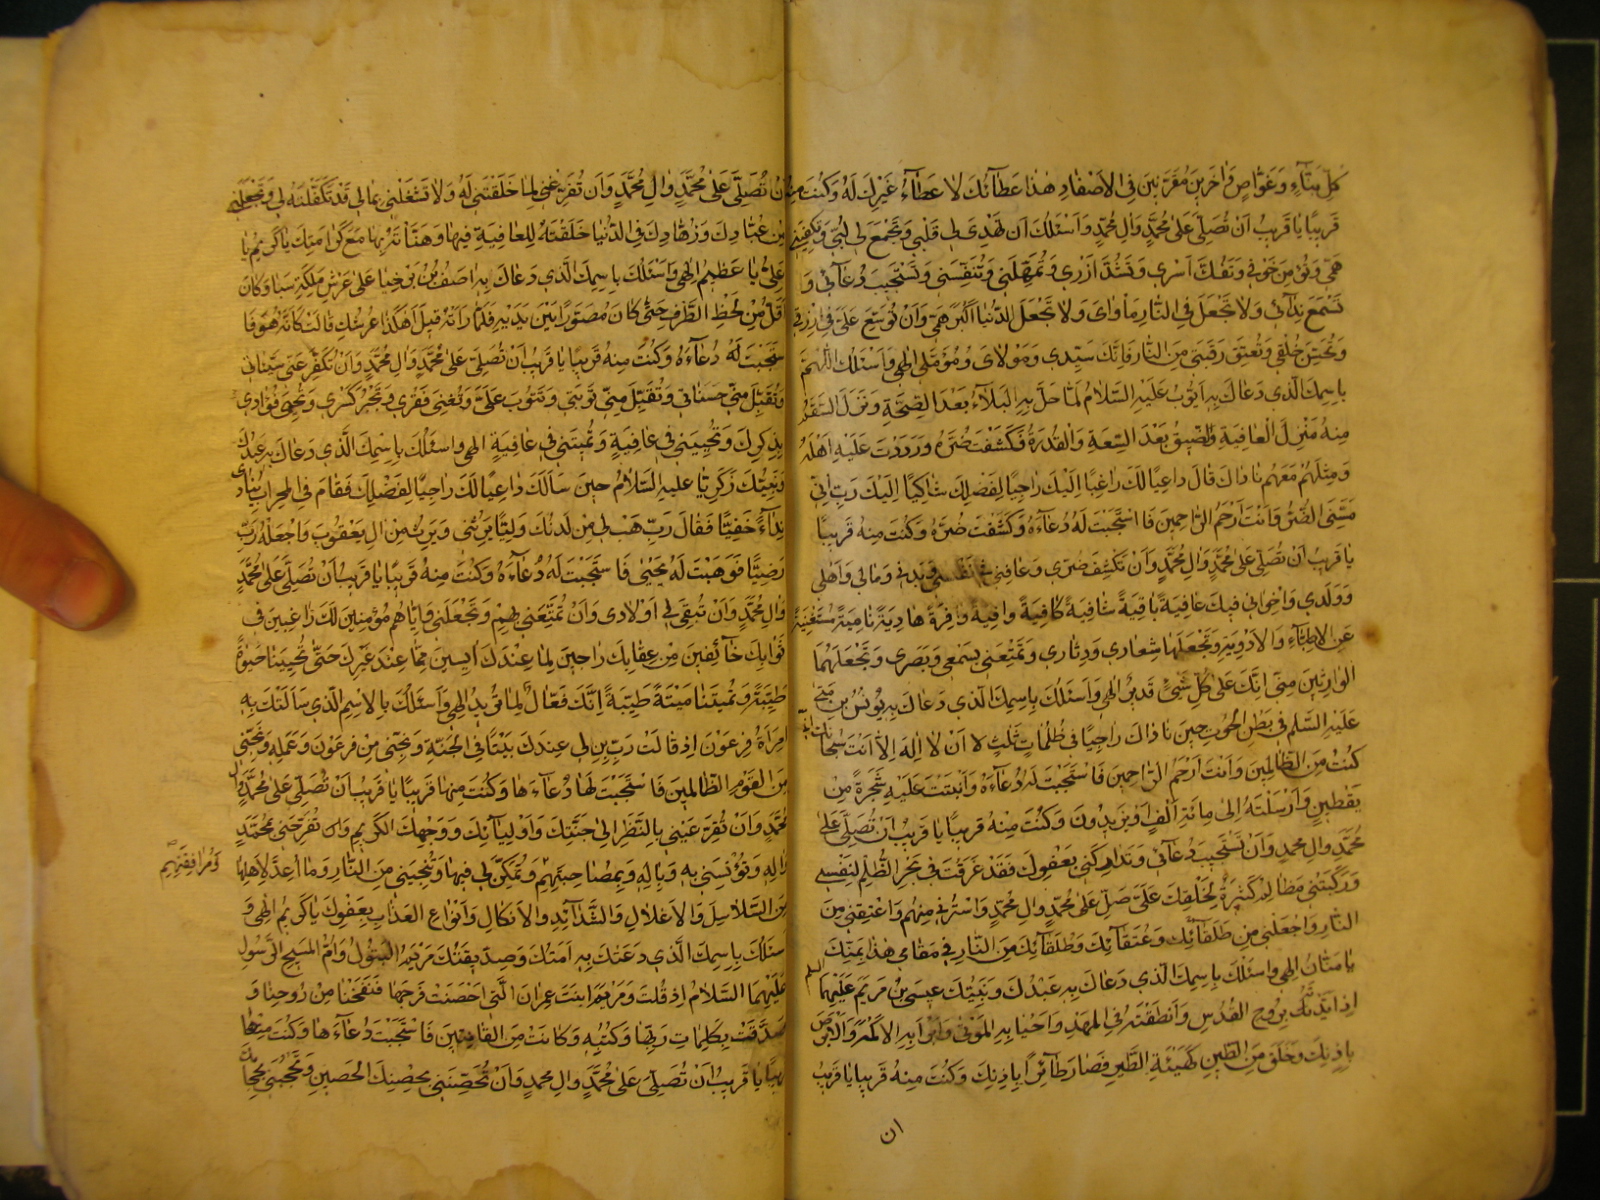 كُلَّ بَنَّآءٍ وَغَوَّاصٍ وَاٰخَرِينَ مُقَرَّنِينَ فِي الْاَصْفَادِ هٰذَا عَطَآئُكَ لَا عَطَآءُ غَيْرِكَ لَهُ وَكُنْتَ مِنْهُ
قَرِيبًا يَا قَرِيبُ اَنْ تُصَلِّيَ عَلىٰ مُحَمَّدٍ وَاٰلِ مُحَمَّدٍ وَاَسْئَلُكَ اَنْ تَهْدِيَ لِي قَلْبِي وَتَجْمَعَ لِي لُبِّي وَتَكْفِيَنِي
هَمِّي وَتُؤْمِنَ خَوْفِي وَتَفُكَّ اَسْرِي وَتَشُدَّ اَزْرِي وَتُمَهِّلَنِي وَتُنَفِّسَنِي وَتَسْتَجِيبَ دُعَآئِي وَ
تَسْمَعَ نِدَآئِي وَلَا تَجْعَلَ فِي النَّارِ مَأْوَايَ وَلَا تَجْعَلَ الدُّنْيَا اَكْبَرَ هَمِّي وَاَنْ تُوَسِّعَ عَلَيَّ فِي رِزْقِي
وَتُحَسِّنَ خُلْقِي وَتُعْتِقَ رَقَبَتِي مِنَ النَّارِ فَاِنَّكَ سَيِّدِي وَمَوْلَايَ وَمُؤَمَّلِي اِلٰهِي وَاَسْئَلُكَ اللّٰهُمَّ
بِاسْمِكَ الَّذِي دَعَاكَ بِهِ اَيُّوبُ عَلَيْهِ السَّلَامُ لَمَّا حَلَّ بِهِ الْبَلَآءُ بَعْدَ الصِّحَّةِ وَنَزَلَ السَّقَمُ
مِنْهُ مَنْزِلَ الْعَافِيَةِ وَالضِّيقُ بَعْدَ السِّعَةِ وَالْقُدْرَةِ فَكَشَفْتَ ضُرَّهُ وَرَدَدْتَ عَلَيْهِ اَهْلَهُ
وَمِثْلَهُمْ مَعَهُمْ نَادَاكَ قَالَ دَاعِيًا لَكَ رَاغِبًا اِلَيْكَ رَاجِيًا لِفَضْلِكَ شَاكِيًا اِلَيْكَ رَبِّ اِنِّي
مَسَّنِيَ الضُّرُّ وَاَنْتَ اَرْحَمُ الرَّاحِمِينَ فَاسْتَجَبْتَ لَهُ دُعَآءَهُ وَكَشَفْتَ ضُرَّهُ وَكُنْتَ مِنْهُ قَرِيبًا
يَا قَرِيبُ اَنْ تُصَلِّيَ عَلىٰ مُحَمَّدٍ وَاٰلِ مُحَمَّدٍ وَاَنْ تَكْشِفَ ضُرِّي وَعَافِنِي فِي نَفْسِي فِي بَدَنِي وَمَالِي وَاَهْلِي
وَوَلَدِي وَاِخْوَانِي فِيكَ عَافِيَةً بَاقِيَةً شَافِيَةً كَافِيَةً وَافِيَةً وَافِرَةً هَادِيَةً نَامِيَةً مُسْتَغْنِيَةً
عَنِ الْاَطِبَّآءِ وَالْاَدْوِيَةِ وَتَجْعَلَهَا شِعَارِي وَدِثَارِي وَتُمَتِّعَنِي بِسَمْعِي وَبَصَرِي وَتَجْعَلَهُمَا
الْوَارِثَيْنِ مِنِّي اِنَّكَ عَلىٰ كُلِّ شَيْءٍ قَدِيرٌ اِلٰهِي وَاَسْئَلُكَ بِاسْمِكَ الَّذِي دَعَاكَ بِهِ يُونُسُ بْنُ مَتّٰى
عَلَيْهِ السَّلٰمُ فِي بَطْنِ الْحُوتِ حِينَ نَادَاكَ رَاجِيًا فِي ظُلُمَاتٍ ثَلٰثٍ لَا اَنْ لَا اِلٰهَ اِلَّا اَنْتَ سُبْحَانَكَ اِنِّي
كُنْتُ مِنَ الظَّالِمِينَ وَاَنْتَ اَرْحَمُ الرَّاحِمِينَ فَاسْتَجَبْتَ لَهُ دُعَآءَهُ وَاَنْبَتَّ عَلَيْهِ شَجَرَةً مِنْ
يَقْطِينٍ وَاَرْسَلْتَهُ اِلىٰ مِائَةِ اَلْفٍ اَوْ يَزِيدُونَ وَكُنْتَ مِنْهُ قَرِيبًا يَا قَرِيبُ اَنْ تُصَلِّيَ عَلىٰ
مُحَمَّدٍ وَاٰلِ مُحَمَّدٍ وَاَنْ تَسْتَجِيبَ دُعَآئِي وَتَدَارَكَنِي بِعَفْوِكَ فَقَدْ غَرَقْتُ فِي بَحْرِ الظُّلْمِ لِنَفْسِي
وَرَكِبَتْنِي مَظَالِمُ كَثِيرَةٌ لِخَلْقِكَ عَلَيَّ صَلِّ عَلىٰ مُحَمَّدٍ وَاٰلِ مُحَمَّدٍ وَاسْتُرْنِي مِنْهُمْ وَاعْتِقْنِي مِنَ
النَّارِ وَاجْعَلْنِي مِنْ طُلَقَآئِكَ وَعُتَقَآئِكَ وَطُلَقَآئِكَ مِنَ النَّارِ فِي مَقَامِي هٰذَا بِمَنِّكَ
يَا مَنَّانُ اِلٰهِي وَاَسْئَلُكَ بِاسْمِكَ الَّذِي دَعَاكَ بِهِ عَبْدُكَ وَنَبِيُّكَ عِيسَى بْنُ مَرْيَمَ عَلَيْهِمَا السلم
اِذْ اَيَّدْتَهُ بِرُوحِ الْقُدُسِ وَاَنْطَقْتَهُ فِي الْمَهْدِ وَاَحْيَا بِهِ الْمَوْتىٰ وَاَبْرَاَ بِهِ الْاَكْمَهَ وَالْاَبْرَصَ
بِاِذْنِكَ وَخَلَقَ مِنَ الطِّينِ كَهَيْئَةِ الطَّيْرِ فَصَارَ طَآئِرًا بِاِذْنِكَ وَكُنْتَ مِنْهُ قَرِيبًا يَا قَرِيبُ
ان
اَنْ تُصَلِّيَ عَلىٰ مُحَمَّدٍ وَاٰلِ مُحَمَّدٍ وَاَنْ تُفَرِّغَنِي لِمَا خَلَقْتَنِي لَهُ وَلَا تَشْغَلْنِي بِمَا لِي قَدْ تَكَفَّلْتَهُ لِي وَتَجْعَلَنِي
مِنْ عُبَّادِكَ وَزُهَّادِكَ فِي الدُّنْيَا خَلَقْتَهُ لِلْعَافِيَةِ فِيهَا وَهَنَّأْتَهُ بِهَا مَعَ كَرَامَتِكَ يَا كَرِيمُ يَا
عَلِيُّ يَا عَظِيمُ اِلٰهِي وَاَسْئَلُكَ بِاسْمِكَ الَّذِي دَعَاكَ بِهِ اٰصَفُ بْنُ بَرْخِيَا عَلىٰ عَرْشِ مَلِكَةِ سَبَا وَكَانَ
اَقَلَّ مِنْ لَحْظِ الطَّرْفِ حَتّٰى كَانَ مُصَوَّرًا بَيْنَ يَدَيْهِ فَلَمَّا رَاَتْهُ قِيلَ اَهٰكَذَا عَرْشُكِ قَالَتْ كَاَنَّهُ هُوَ فَا
سْتَجَبْتَ لَهُ دُعَآءَهُ وَكُنْتَ مِنْهُ قَرِيبًا يَا قَرِيبُ اَنْ تُصَلِّيَ عَلىٰ مُحَمَّدٍ وَاٰلِ مُحَمَّدٍ وَاَنْ تُكَفِّرَ عَنِّي سَيِّئَاتِي
وَتُقَبِّلَ مِنِّي حَسَنَاتِي وَتُقَبِّلَ مِنِّي تَوْبَتِي وَتَتُوبَ عَلَيَّ وَتُغْنِيَ فَقْرِي وَتَجْبُرَ كَسْرِي وَتُحْيِيَ فُؤَادِي
بِذِكْرِكَ وَتُحْيِيَنِي فِي عَافِيَةٍ وَتُمِيتَنِي فِي عَافِيَةِ اِلٰهِي وَاَسْئَلُكَ بِاسْمِكَ الَّذِي دَعَاكَ بِهِ عَبْدُكَ
وَنَبِيُّكَ زَكَرِيَّا عَلَيْهِ السَّلَامُ حِينَ سَاَلَكَ دَاعِيًا لَكَ رَاجِيًا لِفَضْلِكَ فَقَامَ فِي الْمِحْرَابِ يُنَادِي
نِدَآءً خَفِيًّا فَقَالَ رَبِّ هَبْ لِي مِنْ لَدُنْكَ وَلِيًّا يَرِثُنِي وَيَرِثُ مِنْ اٰلِ يَعْقُوبَ وَاجْعَلْهُ رَبِّ
رَضِيًّا فَوَهَبْتَ لَهُ يَحْيىٰ فَاسْتَجَبْتَ لَهُ دُعَآءَهُ وَكُنْتَ مِنْهُ قَرِيبًا يَا قَرِيبُ اَنْ تُصَلِّيَ عَلىٰ مُحَمَّدٍ
وَاٰلِ مُحَمَّدٍ وَاَنْ تُبْقِيَ لِي اَوْلَادِي وَاَنْ تُمَتِّعَنِي بِهِمْ وَتَجْعَلَنِي وَاِيَّاهُمْ مُؤْمِنِينَ لَكَ رَاغِبِينَ فِي
ثَوَابِكَ خَآئِفِينَ مِنْ عِقَابِكَ رَاجِينَ لِمَا عِنْدَكَ اٰيِسِينَ مِمَّا عِنْدَ غَيْرِكَ حَتّٰى تُحْيِيَنَا حَيٰوةً
طَيِّبَةً وَتُمِيتَنَا مِيتَةً طَيِّبَةً اِنَّكَ فَعَّالٌ لِمَا تُرِيدُ اِلٰهِي وَاَسْئَلُكَ بِالْاِسْمِ الَّذِي سَاَلَتْكَ بِهِ
امْرَاَةُ فِرْعَوْنَ اِذْ قَالَتْ رَبِّ ابْنِ لِي عِنْدَكَ بَيْتًا فِي الْجَنَّةِ وَنَجِّنِي مِنْ فِرْعَوْنَ وَعَمَلِهِ وَنَجِّنِي
مِنَ الْقَوْمِ الظَّالِمِينَ فَاسْتَجَبْتَ لَهَا دُعَآءَهَا وَكُنْتَ مِنْهَا قَرِيبًا يَا قَرِيبُ اَنْ تُصَلِّيَ عَلىٰ مُحَمَّدٍ وَاٰلِ
مُحَمَّدٍ وَاَنْ تُقِرَّ عَيْنِي بِالنَّظَرِ اِلىٰ جَنَّتِكَ وَاَوْلِيَآئِكَ وَوَجْهِكَ الْكَرِيمِ وَاَنْ تُفَرِّحَنِي بِمُحَمَّدٍ
وَاٰلِهِ وَتُؤْنِسَنِي بِهِ وَبِاٰلِهِ وَبِمُصَاحَبَتِهِمْ وَتُمَكِّنَ لِي فِيهَا وَتُنْجِيَنِي مِنَ النَّارِ وَمَا اُعِدَّ لِاَهْلِهَا
وَمُرَافَقَتِهِمْ
مِنَ السَّلَاسِلِ وَالْاَغْلَالِ وَالشَّدَآئِدِ وَالْاَنْكَالِ وَاَنْوَاعِ الْعَذَابِ بِعَفْوِكَ يَا كَرِيمُ اِلٰهِي وَ
اَسْئَلُكَ بِاسْمِكَ الَّذِي دَعَتْكَ بِهِ اَمَتُكَ وَصِدِّيقَتُكَ مَرْيَمُ الْبَتُولُ وَاُمُّ الْمَسِيحِ الرَّسُولِ
عَلَيْهِمَا السَّلَامُ اِذْ قُلْتَ وَمَرْيَمَ ابْنَتَ عِمْرَانَ الَّتِي اَحْصَنَتْ فَرْجَهَا فَنَفَخْنَا مِنْ رُوحِنَا وَ
صَدَّقَتْ بِكَلِمَاتِ رَبِّهَا وَكُتُبِهِ وَكَانَتْ مِنَ الْقَانِتِينَ فَاسْتَجَبْتَ دُعَآءَهَا وَكُنْتَ مِنْهَا
قَرِيبًا يَا قَرِيبُ اَنْ تُصَلِّيَ عَلىٰ مُحَمَّدٍ وَاٰلِ مُحَمَّدٍ وَاَنْ تُحَصِّنَنِي بِحِصْنِكَ الْحَصِينِ وَتَحْجُبَنِي بِحِجَابِكَ